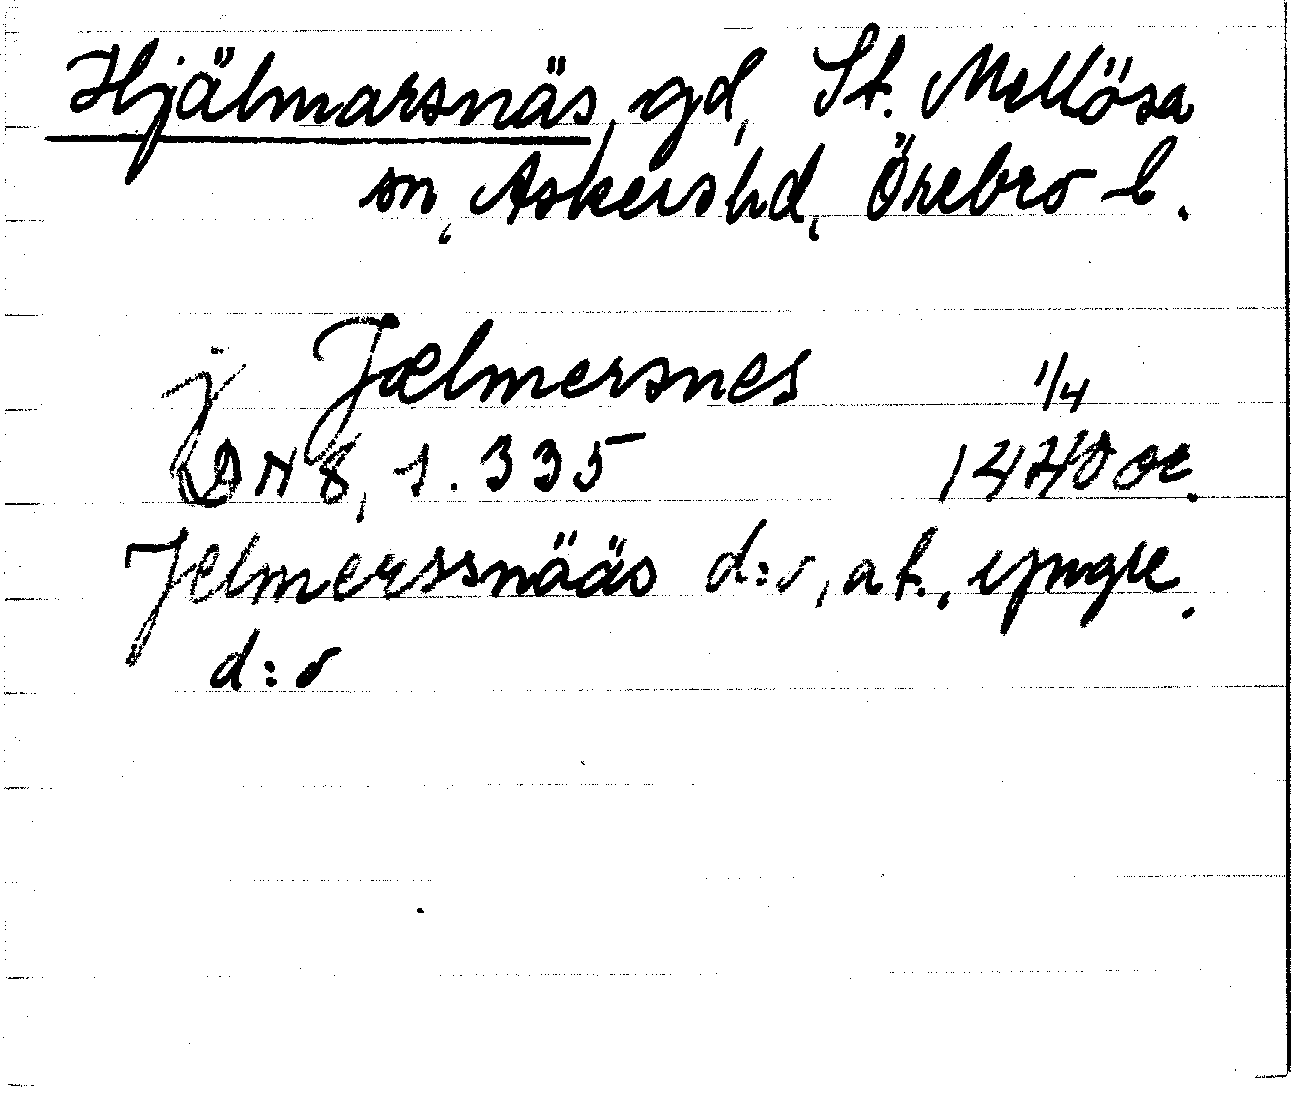 Hjälmarsnäs, gd, St. Mellösa
sn, Askers hd, Örebro l.
j Jælmersnes 1/4
DN 8, 1. 335 1470 or.
Jelmerssnääs d:o, at., yngre.
d:o